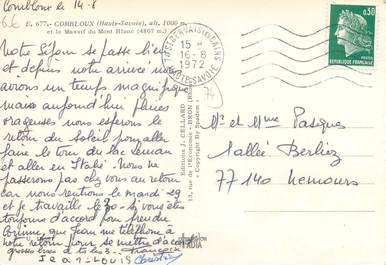 Combloux le 14-8
6E
E. 677.- COMBLOUX (Haute-Savoie), alt. 1000 m.
et le Massif du Mont Blanc (4807 m.)
Notre Séjour se passe bien
et depuis notre arrivé nous
avons un temps magnifique
mais aujourd'hui pluies
orageuses nous espérons le
retour du soleil pour aller
faire le tour du lac Leman
et aller en Italie. Nous ne
passerons pas chez vous au retour
car nous rentrons le mardi 29
et je travaille le 30 si vous êtes
toujours d'accord pour prendre
Corinne, que Jean me téléphone à
notre retour pour se mettre d'accord
grosses bises à tous les 3. Françoise
Jean-Louis Christine
Editions J. CELLARD
13, rue de l'Economie - BRON (Rhône)
Copyright By Spadem
15 H
16-8
1972
HAUTE-SAVOIE
74
0,30
REPUBLIQUE FRANÇAISE
Mr et Mme Pasques
Vallée Berliez
77140 Nemours